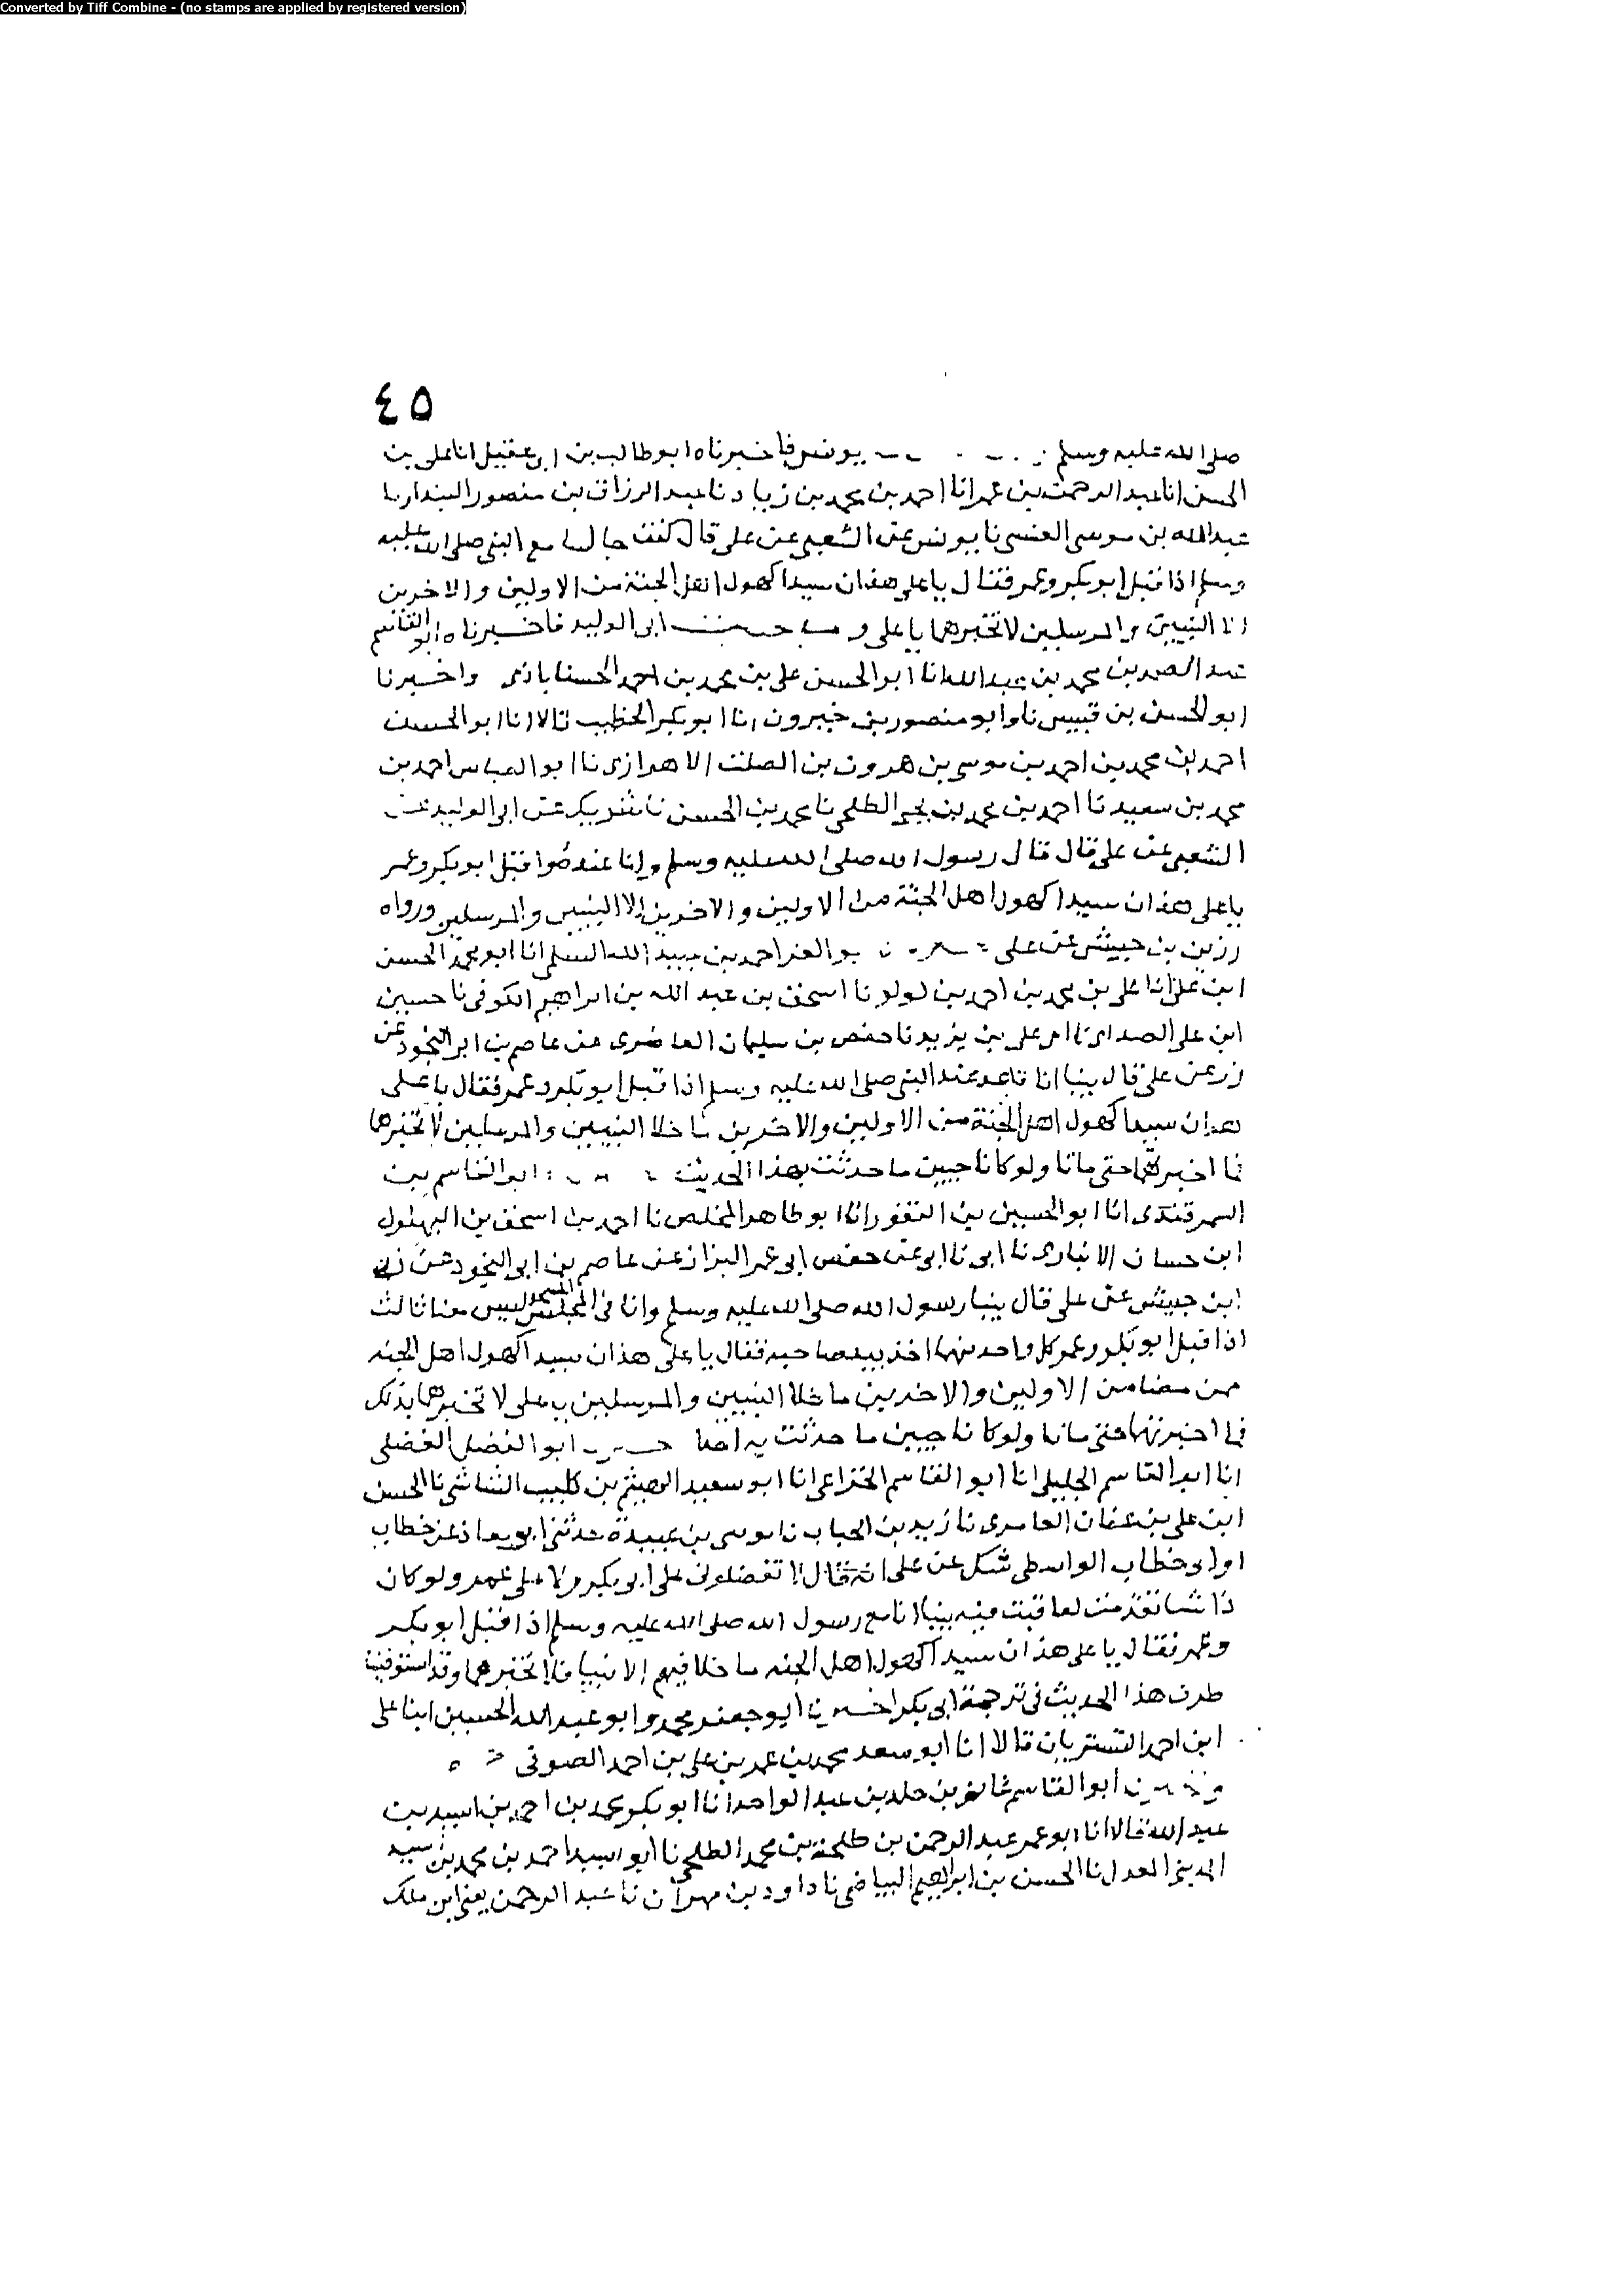 Converted by Tiff Combine - (no stamps are applied by registered version)
٤٥
صلى الله عليه وسلم يونس فاخبرناه ابو طالب بن ابى عقيل انا على بن
الحسن انا عبد الرحمن بن عمر انا احمد بن محمد بن زياد نا عبد الرزاق بن منصور البندار نا
عبد الله بن موسى العنسى نا يونس عن الشعبى عن على قال كنت جالسا مع النبى صلى الله عليه
وسلم اذا قبل ابو بكر وعمر فقال يا على هذان سيدا كهول اهل الجنة من الاولين والاخرين
الا النبيين والمرسلين لا تخبرهما يا على و حديث ابى الوليد فاخبرناه ابو القاسم
عبد الصمد بن محمد بن عبد الله انا ابو الحسن على بن محمد بن احمد الحسناباذى واخبرنا
ابو الحسن بن قبيس نا وابو منصور بن خيرون انا ابو بكر الخطيب قالا انا ابو الحسن
احمد بن محمد بن احمد بن موسى بن هرون بن الصلت الاهوازى نا ابو العباس احمد بن
محمد بن سعيد نا احمد بن محمد بن يحيى الطلحى نا محمد بن الحسن نا شريك عن ابى الوليد عن
الشعبى عن على قال قال رسول الله صلى الله عليه وسلم وانا عنده واقبل ابو بكر وعمر
يا على هذان سيدا كهول اهل الجنة من الاولين والاخرين الا النبيين والمرسلين ورواه
زر بن حبيش عن على ابو العز احمد بن عبيد الله السلمى انا ابو محمد الحسن
ابن على انا على بن محمد بن احمد بن لولو نا اسحق بن عبد الله بن ابراهيم الكوفى نا حسين
ابن على الصداى نا ابى على بن يزيد نا حفص بن سليمان الغاضرى عن عاصم بن ابى النجود عن
زر عن على قال بينا انا قاعد عند النبى صلى الله عليه وسلم اذا قبل ابو بكر وعمر فقال يا على
هذان سيدا كهول اهل الجنة من الاولين والاخرين ما خلا النبيين والمرسلين لا تخبرهما
فما اخبرتهما حتى ماتا ولو كانا حيين ما حدثت بهذا الحديث ابو القاسم بن
السمرقندى انا ابو الحسين بن النقور انا ابو طاهر المخلص نا احمد بن اسحق بن البهلول
ابن حسان الانبارى نا ابى نا ابى عن حفص ابى عمر البزاز عن عاصم بن ابى النجود عن زر
ابن حبيش عن على قال بينا رسول الله صلى الله عليه وسلم وانا فى المجلس المسجد ليس معنا ثالث
اذا قبل ابو بكر وعمر كل واحد منهما اخذ بيد صاحبه فقال يا على هذان سيدا كهول اهل الجنه
ممن مضا من الاولين والاخرين ما خلا النبيين والمرسلين يا على لا تخبرهما بذلك
فما اخبرتهما حتى ماتا ولو كانا حيين ما حدثت به احدا ابو الفضل الفضلى
انا ابو القاسم الخليلى انا ابو القاسم الخزاعى انا ابو سعيد الهيثم بن كليب الشاشى نا الحسن
ابن على بن عفان العامرى نا زيد بن الحباب نا موسى بن عبيدة حدثنى ابو معاذ عن خطاب
او ابى خطاب الواسطى شكل عن على انه قال لا تفضلونى على ابى بكر ولا على عمر ولو كان
ذا شا تقدمت لعاقبت فيه بينا انا مع رسول الله صلى الله عليه وسلم اذا قبل ابو بكر
وعمر فقال يا على هذان سيدا كهول اهل الجنه ما خلا فيهم الانبيا فلا تخبرهما وقد استوفيت
طرق هذا الحديث فى ترجمة ابى بكر اخبرنا ابو جعفر محمد وابو عبد الله الحسين ابنا على
ابن احمد التستريان قالا انا ابو سعد محمد بن عمر بن على بن احمد الصوفى
ابو القاسم غانم بن خلد بن عبد الواحد انا ابو بكر محمد بن احمد بن اسيد بن
عبد الله قالا انا ابو عمر عبد الرحمن بن طلحة بن محمد الطلحى نا ابو اسيد احمد بن محمد بن اسيد
المدينى المعدل نا الحسن بن ابراهيم البياضى نا داود بن مهران نا عبد الرحمن يعنى ابن ملك